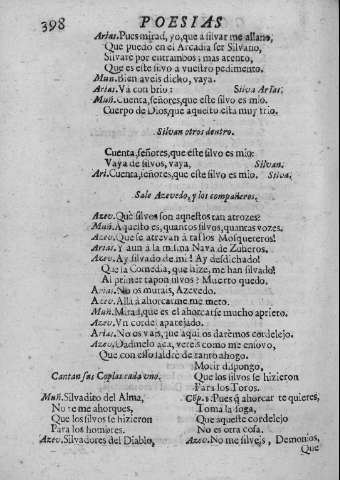 398 POESIAS
Arias. Pues mirad, yo, que à silvar me allano,
Que puedo en el Arcadia ser Silvano,
Silvarè por entrambos; mas atento,
Que es este silvo a vuestro pedimento.
Muñ. Bien aveis dicho, vaya.
Arias. Và con brio: Silva Arias.
Muñ. Cuenta, señores, que este silvo es mio.
Cuerpo de Dios, que aquesto està muy frio.
Silvan otros dentro.
Cuenta, señores, que este silvo es mio:
Vaya de silvos, vaya, Silvan.
Ari. Cuenta, señores, que este silvo es mio. Silva.
Sale Azevedo, y los compañeros.
Azev. Què silvos son aquestos tan atrozes?
Muñ. Aquesto es, quantos silvos, quantas vozes.
Azev. Que se atrevan à tal los Mosqueteros!
Arias. Y aun à la misma Nava de Zuheros.
Azev. Ay silvado de mi! Ay desdichado!
Que la Comedia, que hize, me han silvado!
Al primer tapon silvos? Muerto quedo.
Arias. No os murais, Azevedo.
Azev. Allà à ahorcarme me meto.
Muñ. Mirad, que es el ahorcarse mucho aprieto.
Azev. Vn cordel aparejado.
Arias. No os vais, que aqui os daremos cordelejo.
Azev. Dadmelo acà, vereis como me ensovo,
Que con esso saldrè de tanto ahogo.
Cantan sus Coplas cada uno.
Muñ. Silvadito del Alma,
No te me ahorques,
Que los silvos se hizieron
Para los hombres.
Azev. Silvadores del Diablo,
Morir dispongo,
Que los silvos se hizieron
Para los Toros.
Cōp. 1. Pues q̃ ahorcar te quieres,
Toma la soga,
Que aqueste cordelejo
No es otra cosa.
Azev. No me silveis, Demonios,
Que